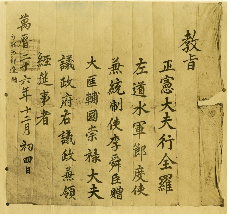 教旨
正憲大夫行全羅
左道水軍節度使
兼統制使李舜臣贈
大匡輔國崇祿大夫
議政府右議政兼領
經筵事者
萬曆二十六年十二月初四日